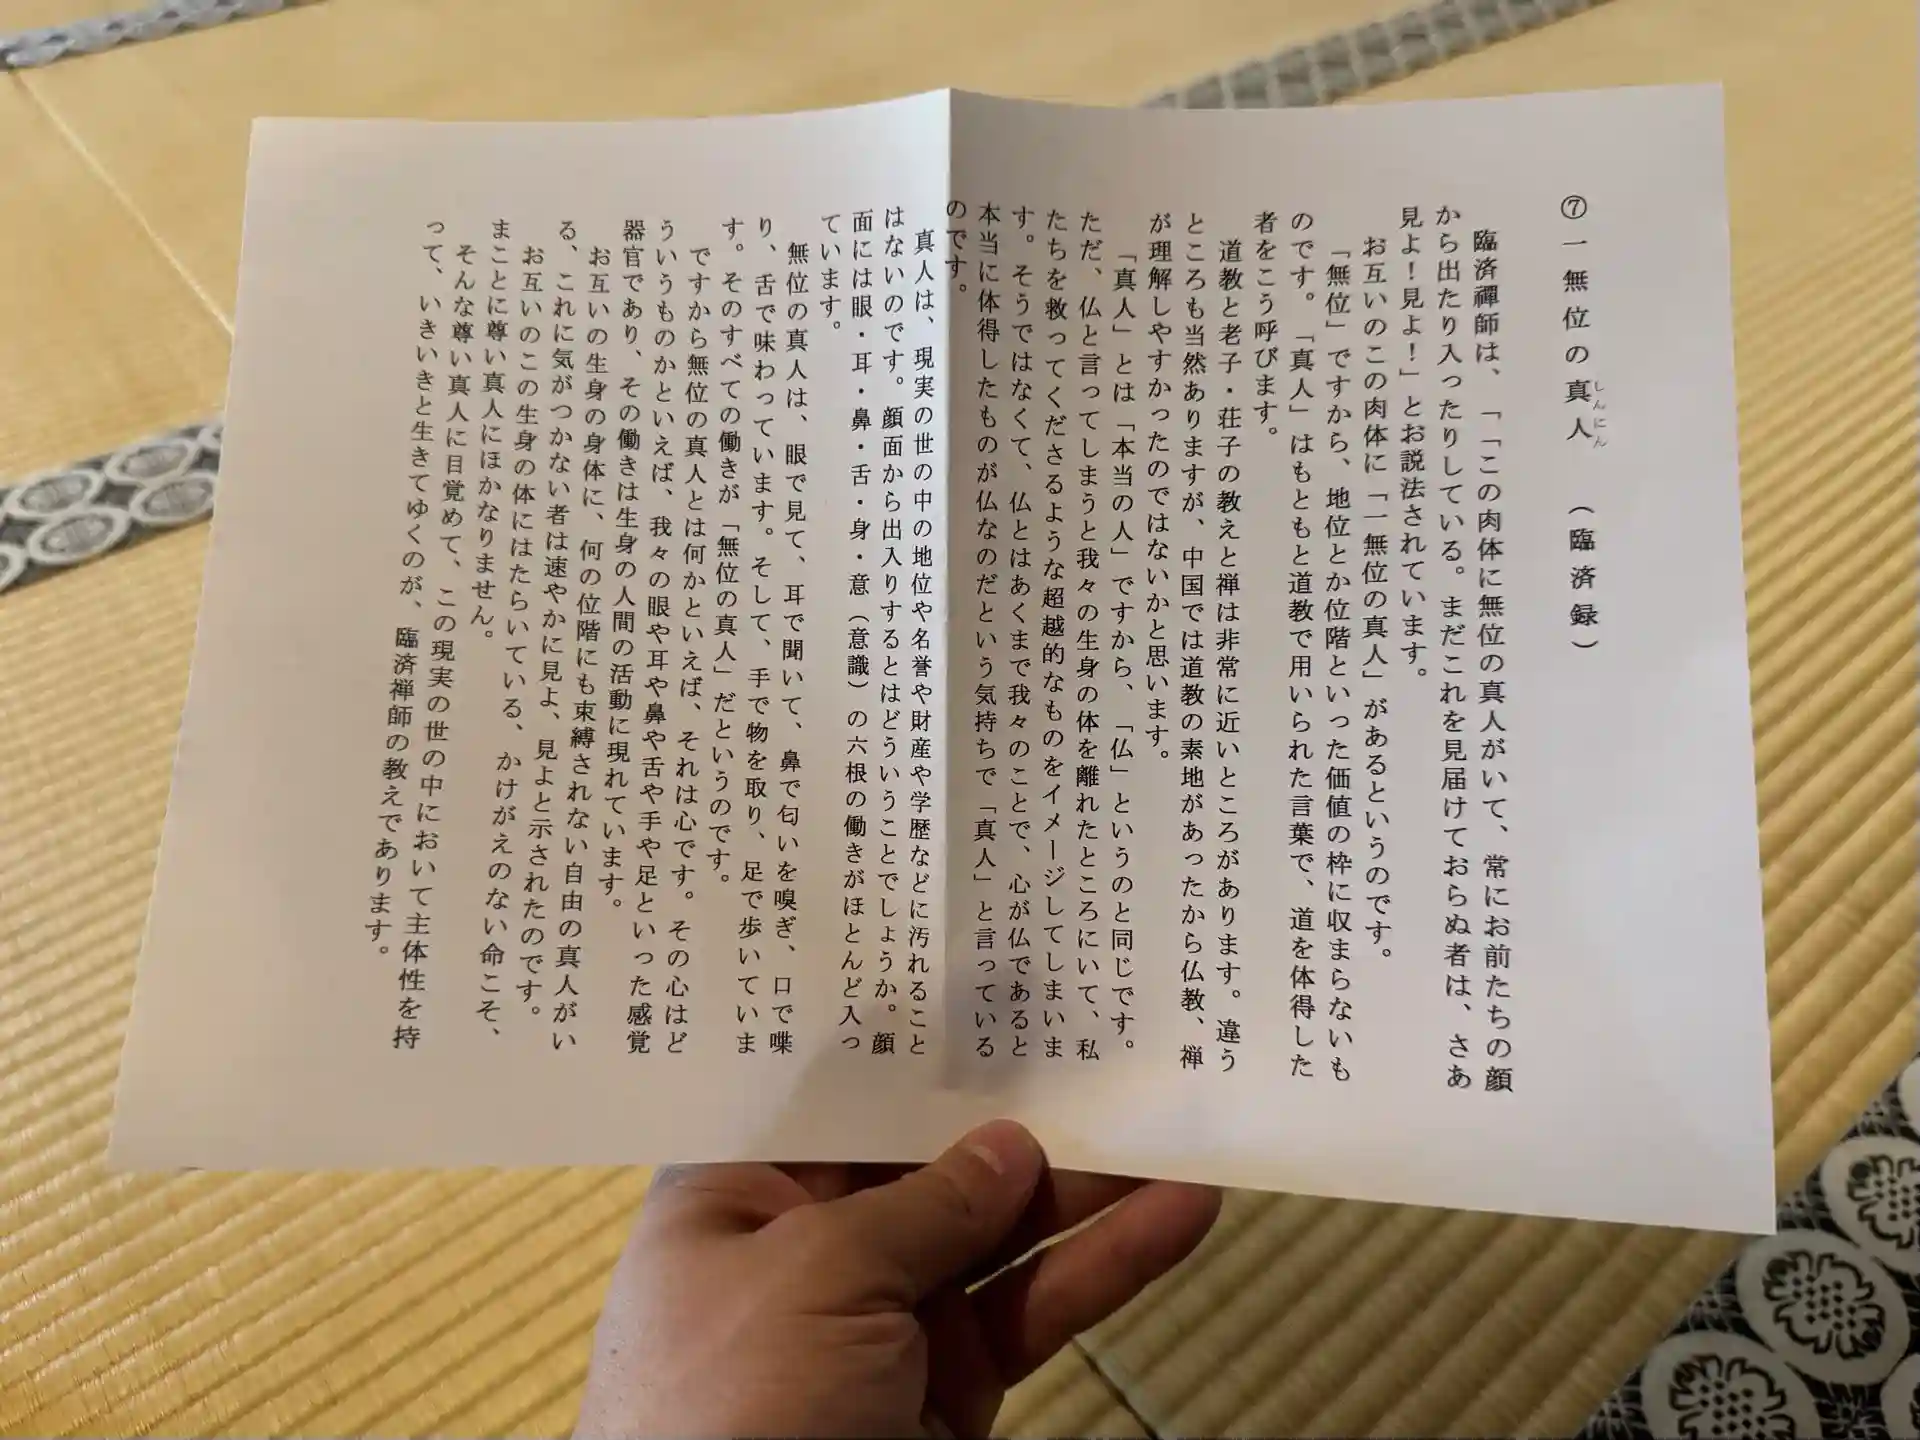 ⑦一無位の真人 （臨済録）
しんにん
臨済禪師は、「「この肉体に無位の真人がいて、常にお前たちの顔
から出たり入ったりしている。まだこれを見届けておらぬ者は、さあ
見よ！見よ！」とお説法されています。
お互いのこの肉体に「一無位の真人」があるというのです。
「無位」ですから、地位とか位階といった価値の枠に収まらないも
のです。「真人」はもともと道教で用いられた言葉で、道を体得した
者をこう呼びます。
道教と老子・荘子の教えと禅は非常に近いところがあります。違う
ところも当然ありますが、中国では道教の素地があったから仏教、禅
が理解しやすかったのではないかと思います。
「真人」とは「本当の人」ですから、「仏」というのと同じです。
ただ、仏と言ってしまうと我々の生身の体を離れたところにいて、私
たちを救ってくださるような超越的なものをイメージしてしまいま
す。そうではなくて、仏とはあくまで我々のことで、心が仏であると
本当に体得したものが仏なのだという気持ちで「真人」と言っている
のです。
真人は、現実の世の中の地位や名誉や財産や学歴などに汚れること
はないのです。顔面から出入りするとはどういうことでしょうか。顔
面には眼・耳・鼻・舌・身・意（意識）の六根の働きがほとんど入っ
ています。
無位の真人は、眼で見て、耳で聞いて、鼻で匂いを嗅ぎ、口で喋
り、舌で味わっています。そして、手で物を取り、足で歩いていま
す。そのすべての働きが「無位の真人」だというのです。
ですから無位の真人とは何かといえば、それは心です。その心はど
ういうものかといえば、我々の眼や耳や鼻や舌や手や足といった感覚
器官であり、その働きは生身の人間の活動に現れています。
お互いの生身の身体に、何の位階にも束縛されない自由の真人がい
る、これに気がつかない者は速やかに見よ、見よと示されたのです。
お互いのこの生身の体にはたらいている、かけがえのない命こそ、
まことに尊い真人にほかなりません。
そんな尊い真人に目覚めて、この現実の世の中において主体性を持
って、いきいきと生きてゆくのが、臨済禅師の教えであります。